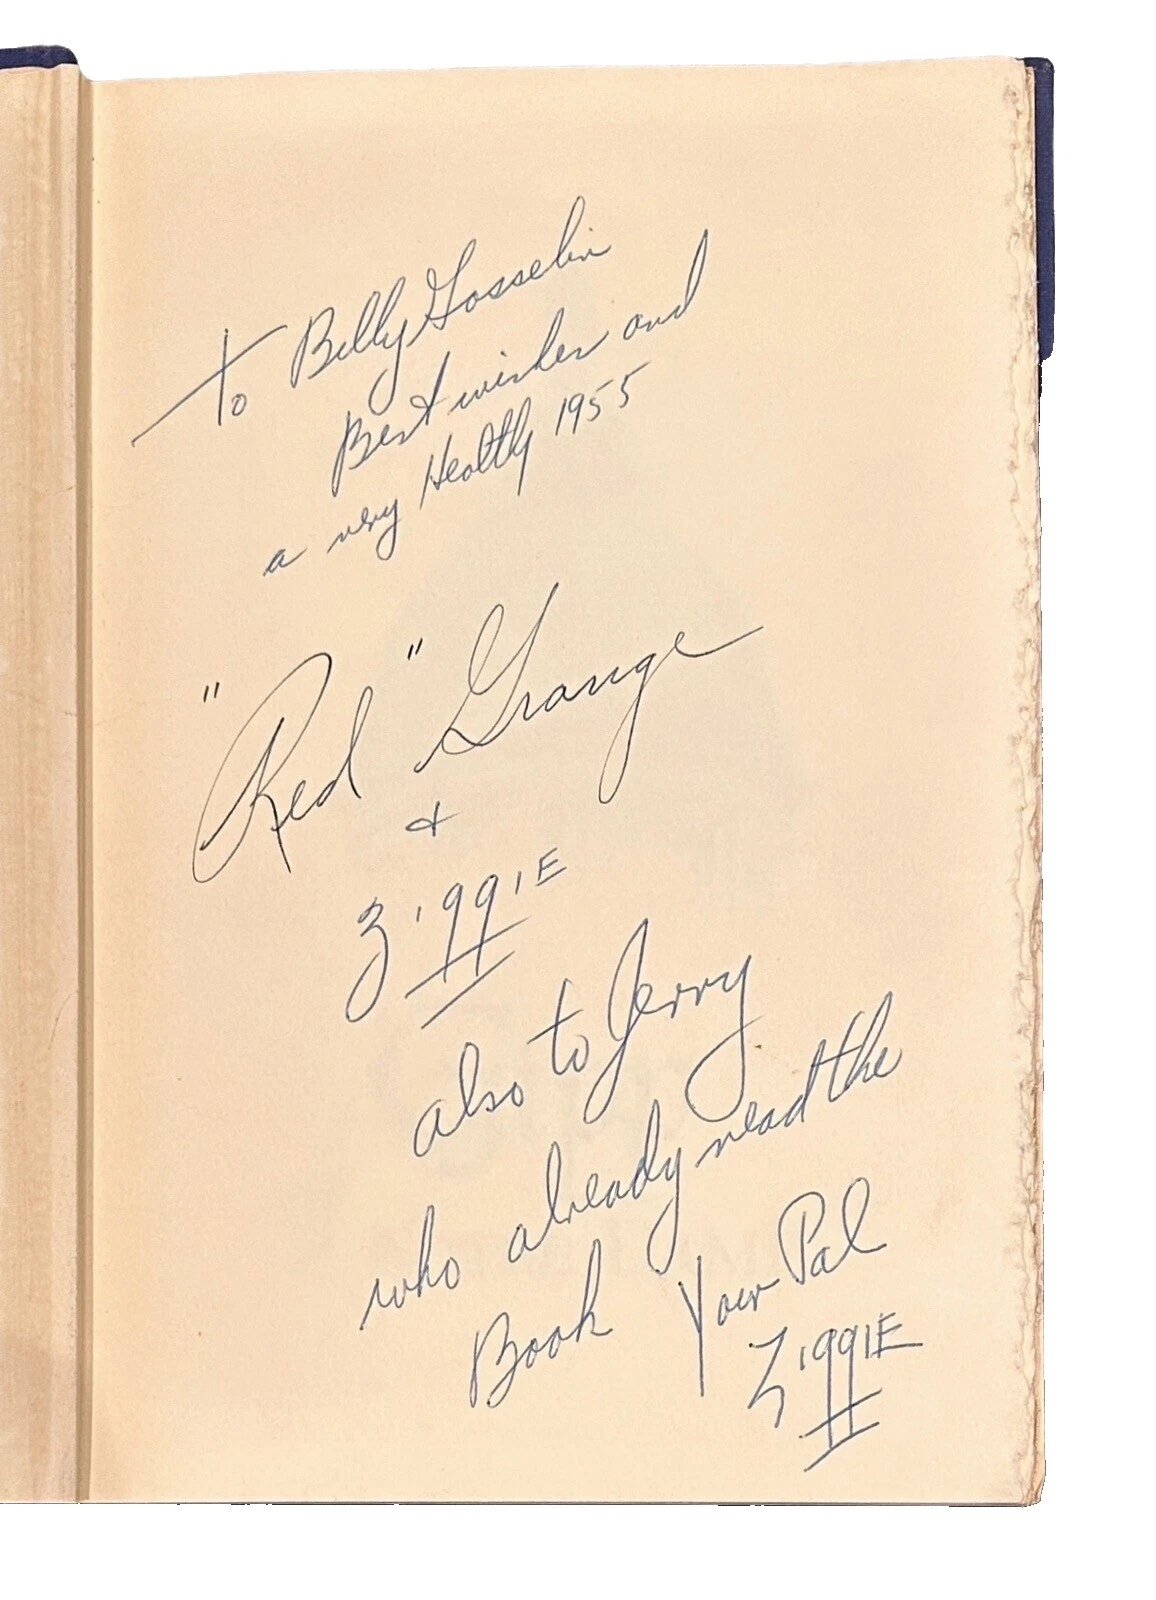 To Billy Gosselin
Best wishes and
a very Healthy 1955
"Red" Grange
&
Ziggie
also to Jerry
who already read the
Book Your Pal
Ziggie